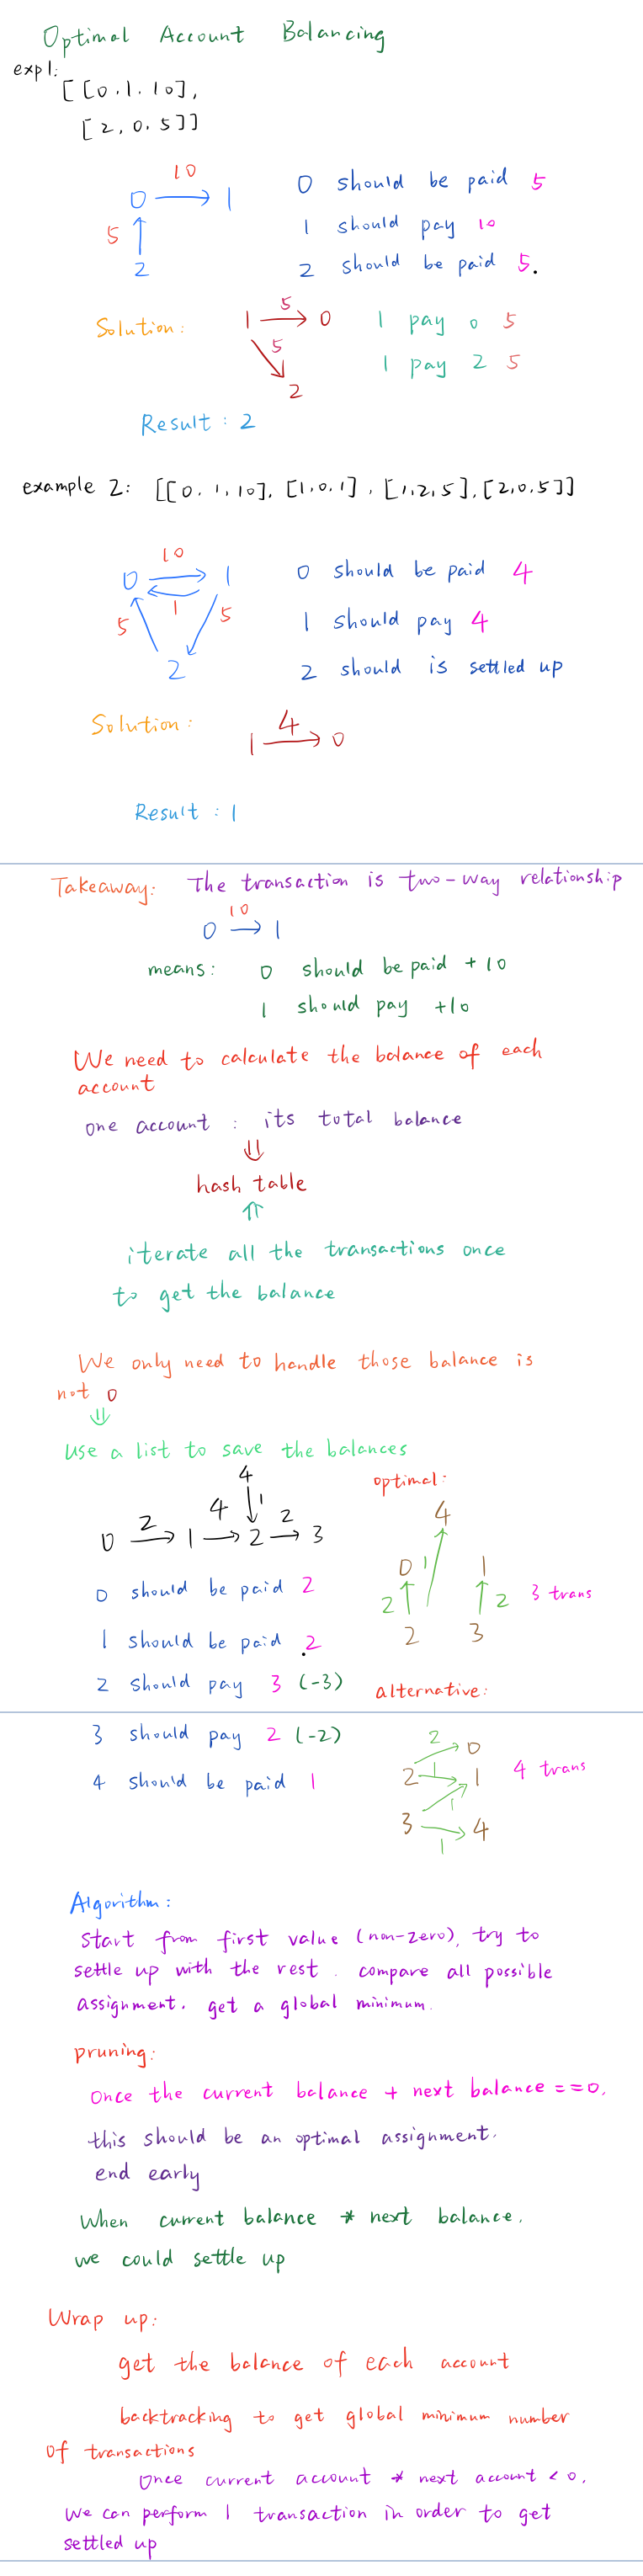 Optimal Account Balancing
expl:
[[0.1.10],
[2,0.5]]
10
0 → 1
5 ↑
2
0 should be paid 5
1 should pay 10
2 should be paid 5.
Solution:
5
1 → 0
5
2
1 pay 0 5
1 pay 2 5
Result: 2
example 2: [[0.1,10],[1,0,1],[1,2,5],[2,0,5]]
10
0 1
5 1 5
2
0 should be paid 4
1 should pay 4
2 should is settled up
Solution:
4
1 → 0
Result: 1
Takeaway: The transaction is two-way relationship
10
0 → 1
means: 0 should be paid +10
1 should pay +10
We need to calculate the balance of each
account
one account : its total balance
⇓
hash table
⇑
iterate all the transactions once
to get the balance
We only need to handle those balance is
not 0
⇓
Use a list to save the balances
4
2 4 ↓1 2
0 → 1 → 2 → 3
0 should be paid 2
1 should be paid 2
2 should pay 3 (-3)
optimal:
4
0 1 1
2 ↑ ↑ 2 3 trans
2 3
alternative:
3 should pay 2 (-2)
4 should be paid 1
2 0
2 1 1 4 trans
3 1
1 4
Algorithm:
Start from first value (non-zero), try to
settle up with the rest. compare all possible
assignment. get a global minimum.
pruning:
Once the current balance + next balance ==0,
this should be an optimal assignment.
end early
When current balance * next balance.
we could settle up
Wrap up:
get the balance of each account
backtracking to get global minimum number
of transactions
Once current account * next account < 0.
We can perform 1 transaction in order to get
settled up